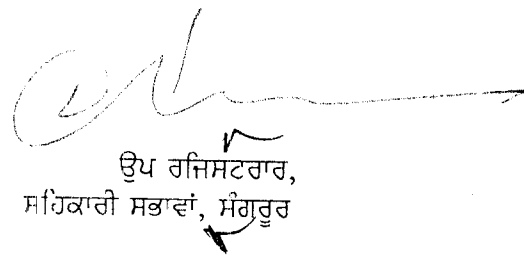 ਉਪ ਰਜਿਸਟਰਾਰ,
ਸਹਿਕਾਰੀ ਸਭਾਵਾਂ, ਸੰਗਰੂਰ